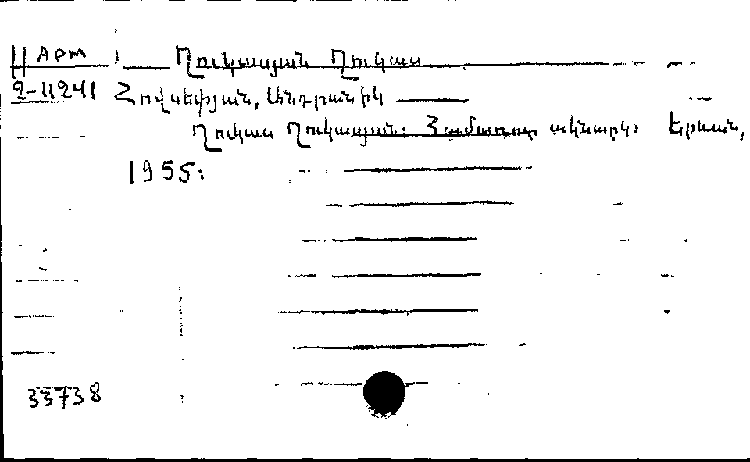 II АРМ Ղուկասյան Ղուկաս
2-11241 Հովսեփյան, Անդրանիկ
Ղուկաս Ղուկասյան: Համառոտ ակնարկ: Երևան,
1955:
33738